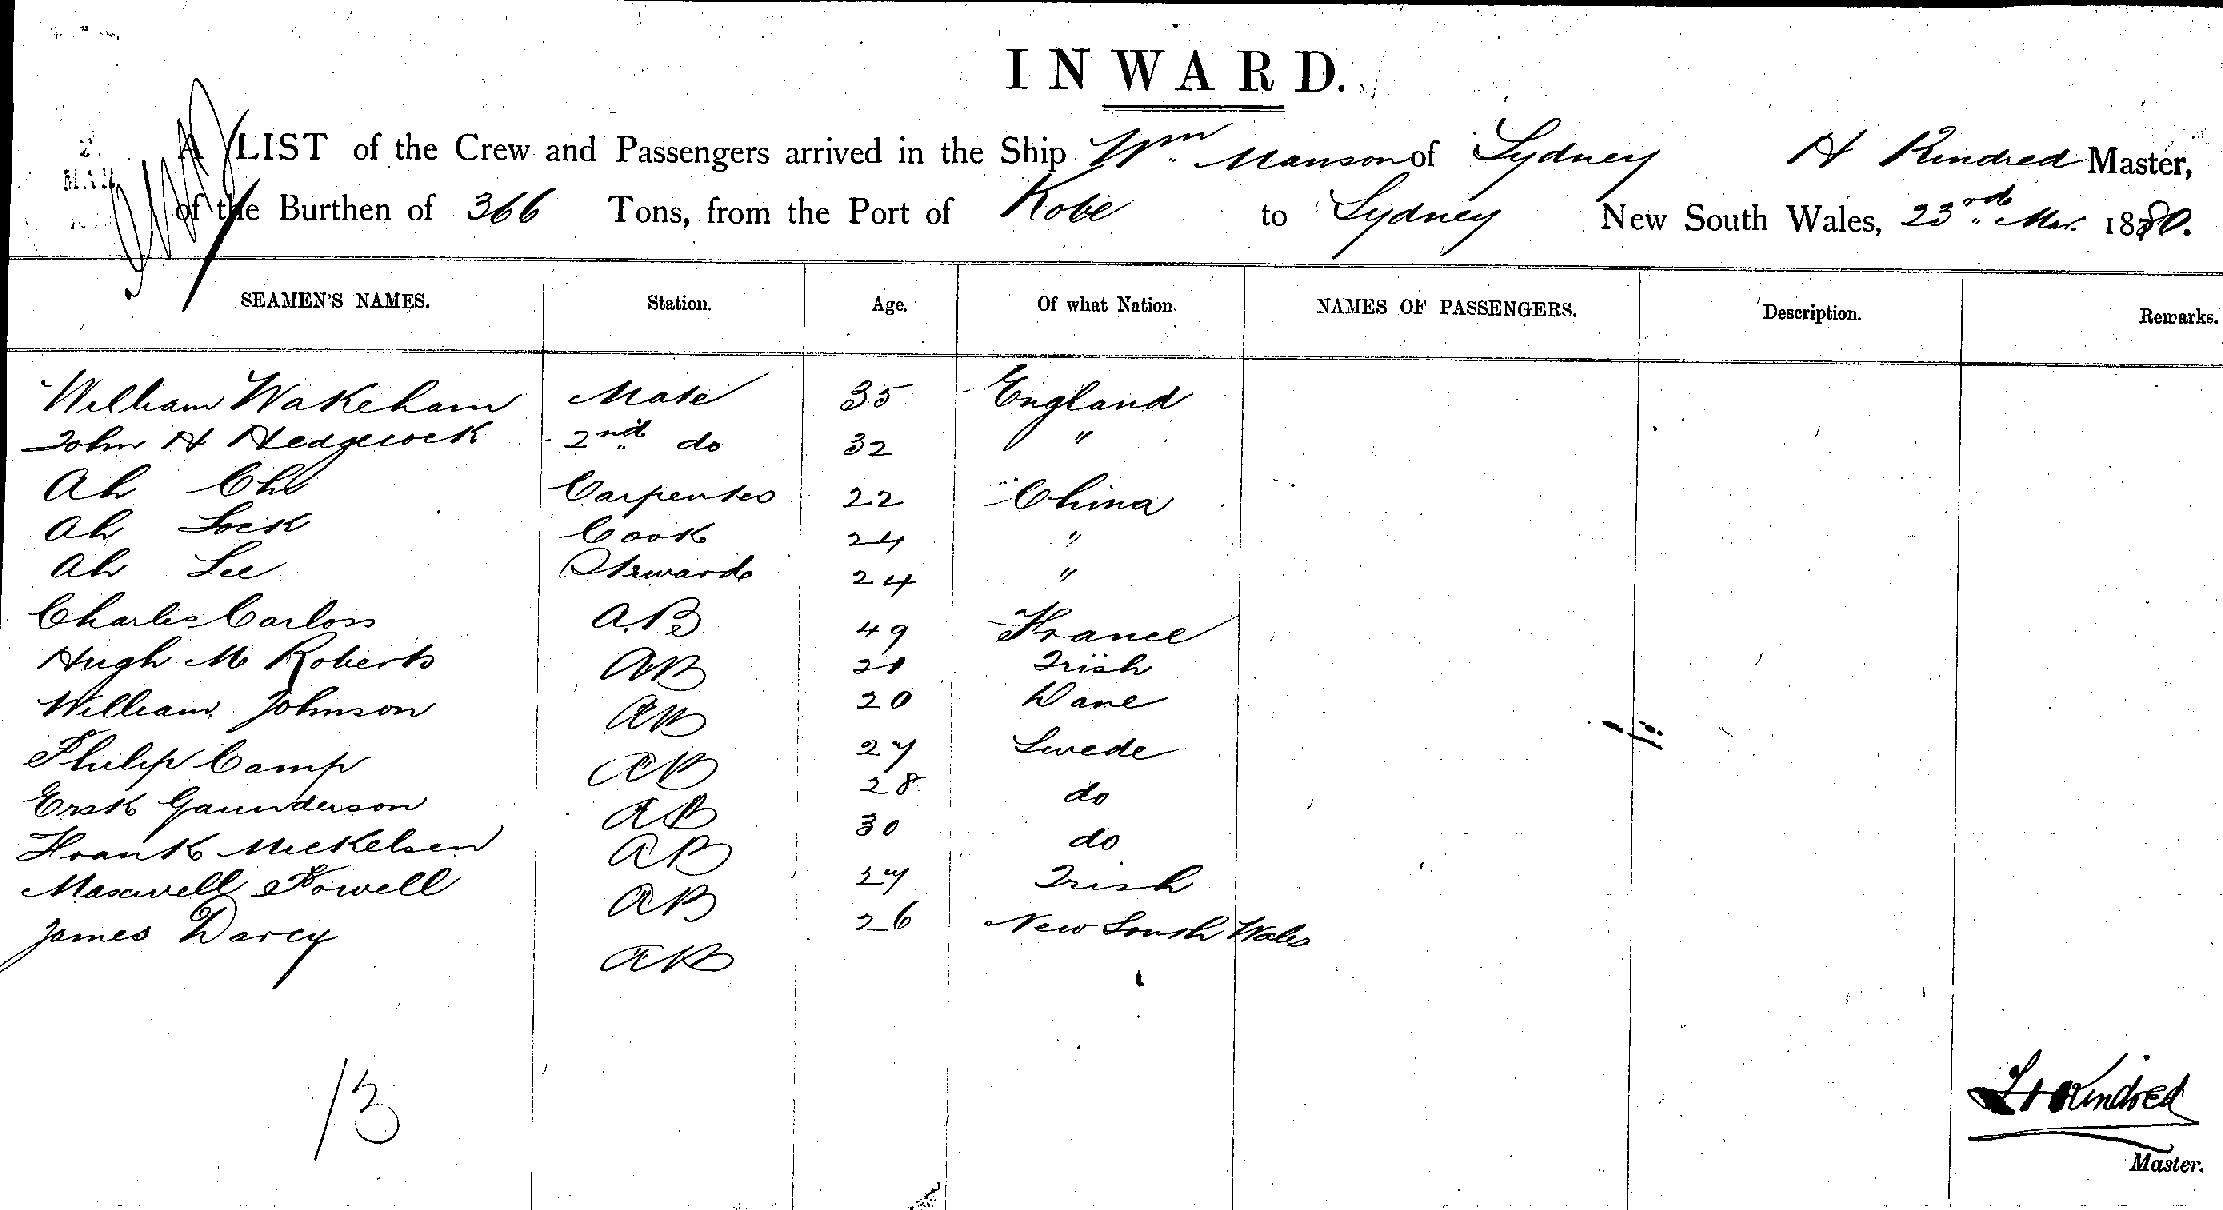 INWARD.
A LIST of the Crew and Passengers arrived in the Ship Wm Manson of Sydney H Kindred Master,
of the Burthen of 366 Tons, from the Port of Kobe to Sydney New South Wales, 23rd Mar. 1880.
SEAMEN'S NAMES. Station. Age. Of what Nation. NAMES OF PASSENGERS. Description. Remarks.
William Wakeham Mate 35 England
John H Hedgecock 2nd do 32 "
Ah Cho Carpenter 22 China
Ah Lock Cook 24 "
Ah Lee Steward 24 "
Charles Carloss A.B 49 France
Hugh Mc Roberts AB 21 Irish
William Johnson AB 20 Dane
Philip Camp AB 27 Swede
Erik Gaunderson AB 28 do
Frank Mickelsen AB 30 do
Maxwell Powell AB 27 Irish
James Darcy AB 26 New South Wales
13
H Kindred
Master.